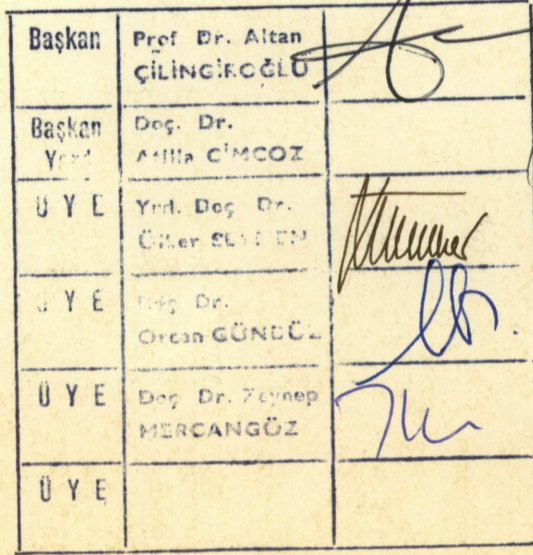 Başkan Prof Dr. Altan
ÇİLİNGİROĞLU
Başkan Doç. Dr.
Atilla CİMCOZ
ÜYE Yrd. Doç Dr.
Ülker
ÜYE Doç Dr.
Orcan GÜNDÜZ
ÜYE Doç Dr. Zeynep
MERCANGÖZ
ÜYE